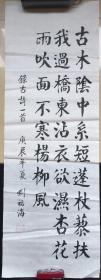 古木陰中系短蓬杖藜扶
我過橋東沾衣欲濕杏花
雨吹面不寒楊柳風
錄古詩一首 庚辰年夏 劉福海